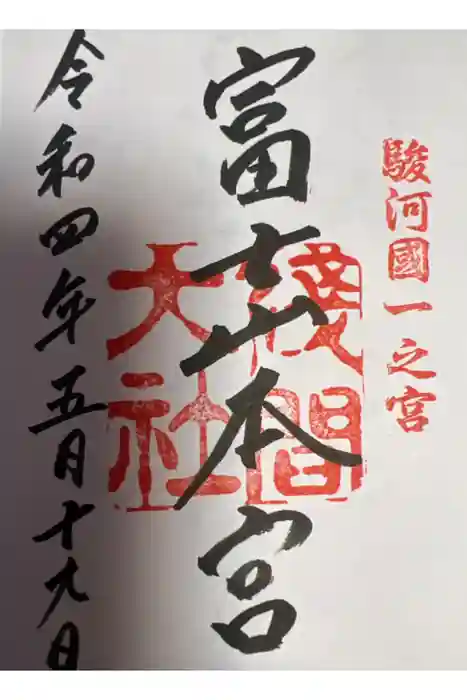 駿河國一之宮
富士山本宮
淺間大社
令和四年五月十九日